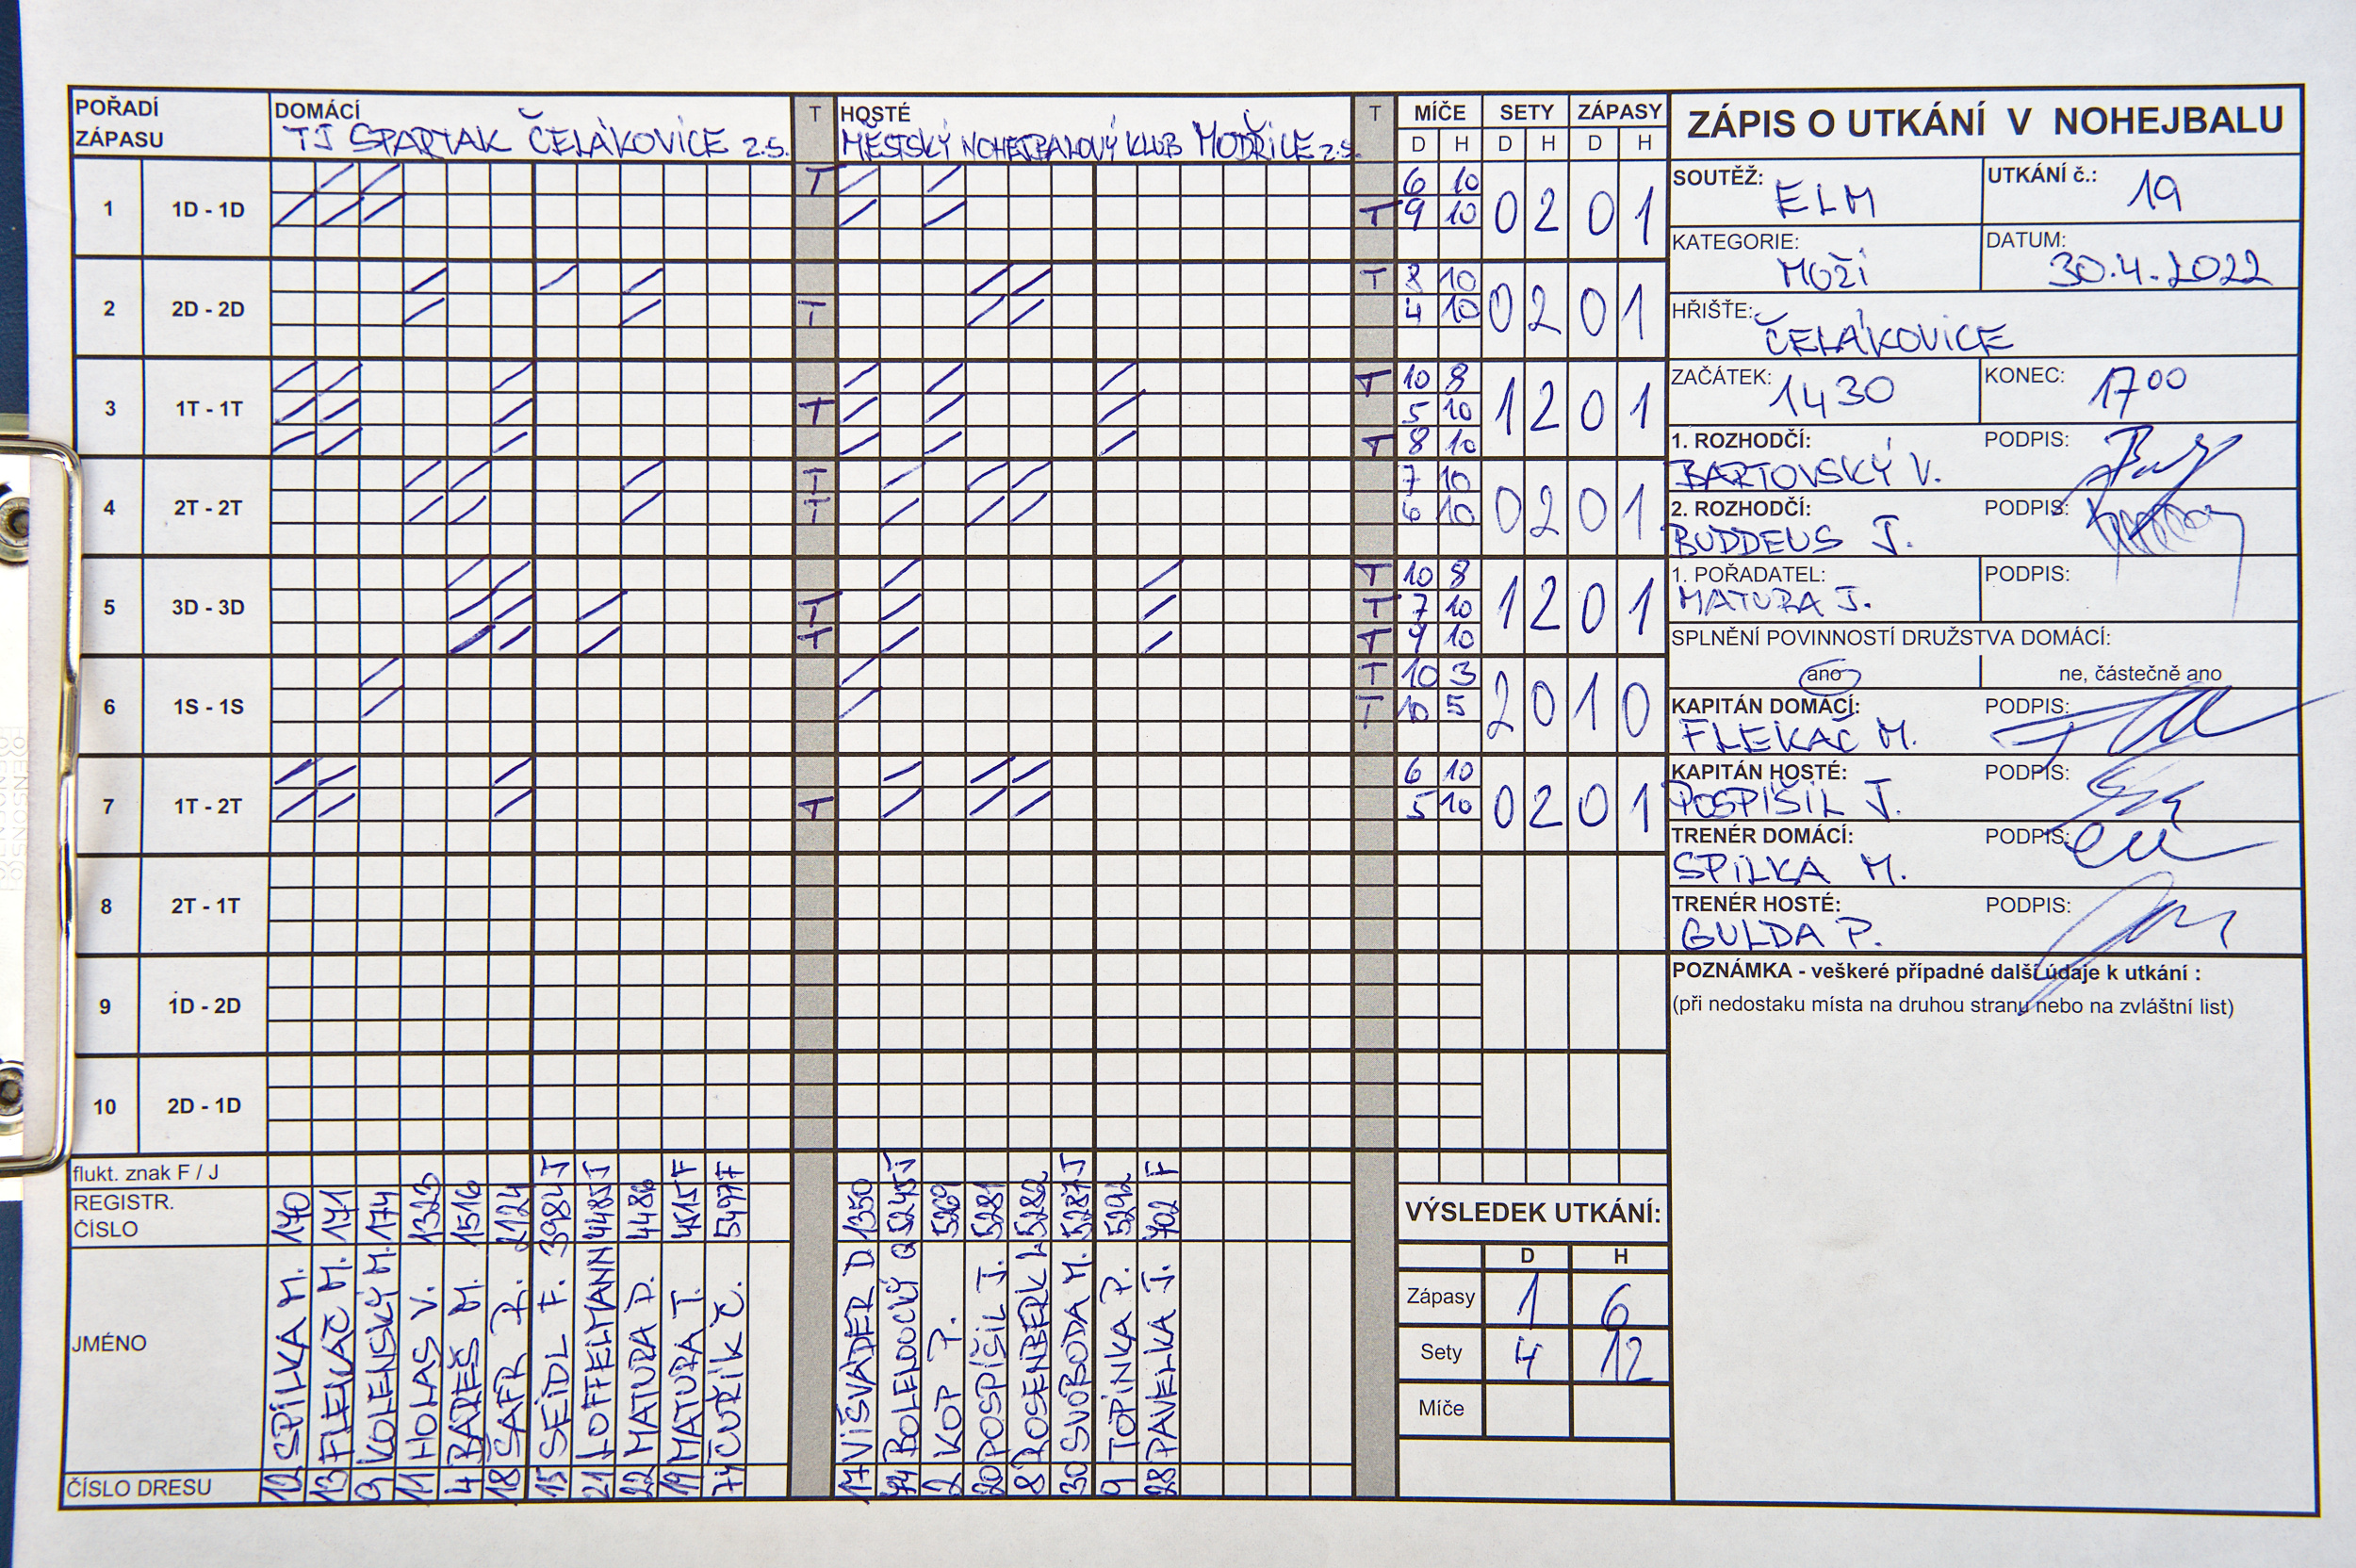 POŘADÍ ZÁPASU
DOMÁCÍ
TJ SPARTAK ČELÁKOVICE 2.S.
T
HOSTÉ
MĚSTSKÝ NOHEJBALOVÝ KLUB MODŘICE 2.S.
T
MÍČE SETY ZÁPASY
D H D H D H
ZÁPIS O UTKÁNÍ V NOHEJBALU
SOUTĚŽ: ELM
UTKÁNÍ č.: 19
KATEGORIE: MUŽI
DATUM: 30.4.2022
HŘIŠTĚ: ČELÁKOVICE
ZAČÁTEK: 1430
KONEC: 1700
1. ROZHODČÍ: BARTOVSKÝ V.
PODPIS:
2. ROZHODČÍ: BUDDEUS J.
PODPIS:
1. POŘADATEL: MATURA J.
PODPIS:
SPLNĚNÍ POVINNOSTÍ DRUŽSTVA DOMÁCÍ:
ano
ne, částečně ano
KAPITÁN DOMÁCÍ: FLEKAČ M.
PODPIS:
KAPITÁN HOSTÉ: POSPÍŠIL J.
PODPIS:
TRENÉR DOMÁCÍ: SPILKA M.
PODPIS:
TRENÉR HOSTÉ: GULDA P.
PODPIS:
POZNÁMKA - veškeré případné další údaje k utkání :
(při nedostaku místa na druhou stranu nebo na zvláštní list)
1 1D - 1D T 6 10 0 2 0 1
T 9 10
2 2D - 2D T 8 10 0 2 0 1
T 4 10
3 1T - 1T T 10 8 1 2 0 1
T 5 10
T 8 10
4 2T - 2T T 7 10 0 2 0 1
T 6 10
5 3D - 3D T 10 8 1 2 0 1
T T 7 10
T T 9 10
6 1S - 1S T 10 3 2 0 1 0
T 10 5
7 1T - 2T 6 10 0 2 0 1
T 5 10
8 2T - 1T
9 1D - 2D
10 2D - 1D
flukt. znak F / J
REGISTR. ČÍSLO
JMÉNO
ČÍSLO DRESU
12 SPILKA M. 170
13 FLEKAČ M. 171
9 KOLENSKÝ M. 174
11 HOLAS V. 1323
4 BAREŠ M. 1516
18 ŠAFR R. 2124
15 SEIDL F. 3984 J
21 LOFFELMANN 4485 J
22 MATURA D. 4486
19 MATURA T. 4515 F
74 CUŘÍK Č. 5497 F
17 VIŠVADER D 1350
BOLELOUCKÝ 5245 J
2 KOP P. 5269
20 POSPÍŠIL J. 5281
8 ROSENBERK L 5282
30 SVOBODA M. 5287 J
9 TOPINKA P. 5292
28 PAVELKA J. 702 F
VÝSLEDEK UTKÁNÍ:
D H
Zápasy 1 6
Sety 4 12
Míče